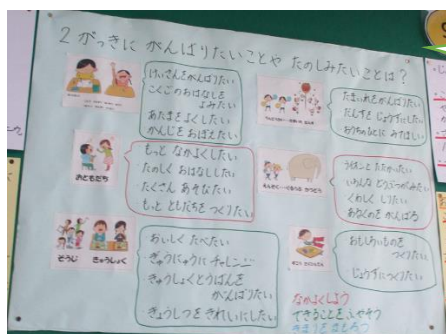 2がっきに がんばりたいことや たのしみたいことは?
けいさんをがんばりたい
こくごのおはなしを
よみたい
あたまをよくしたい
かんじをおぼえたい
たまいれをがんばりたい
だんすを じょうずにしたい
おうちのひとに みてほしい
おともだち
もっと なかよくしたい
たのしく おはなししたい
たくさん あそびたい
もっと ともだちを つくりたい
いろんな どうぶつがみたい
くわしく しりたい
あるくのを がんばる
そうじ きゅうしょく
おいしく たべたい
ぎゅうにゅうに チャレンジ
きゅうしょくとうばんを
がんばりたい
きょうしつを きれいにしたい
おもしろいものを
つくりたい
じょうずにつくりたい
なかよくしよう
できることを ふやそう
きまりを まもろう